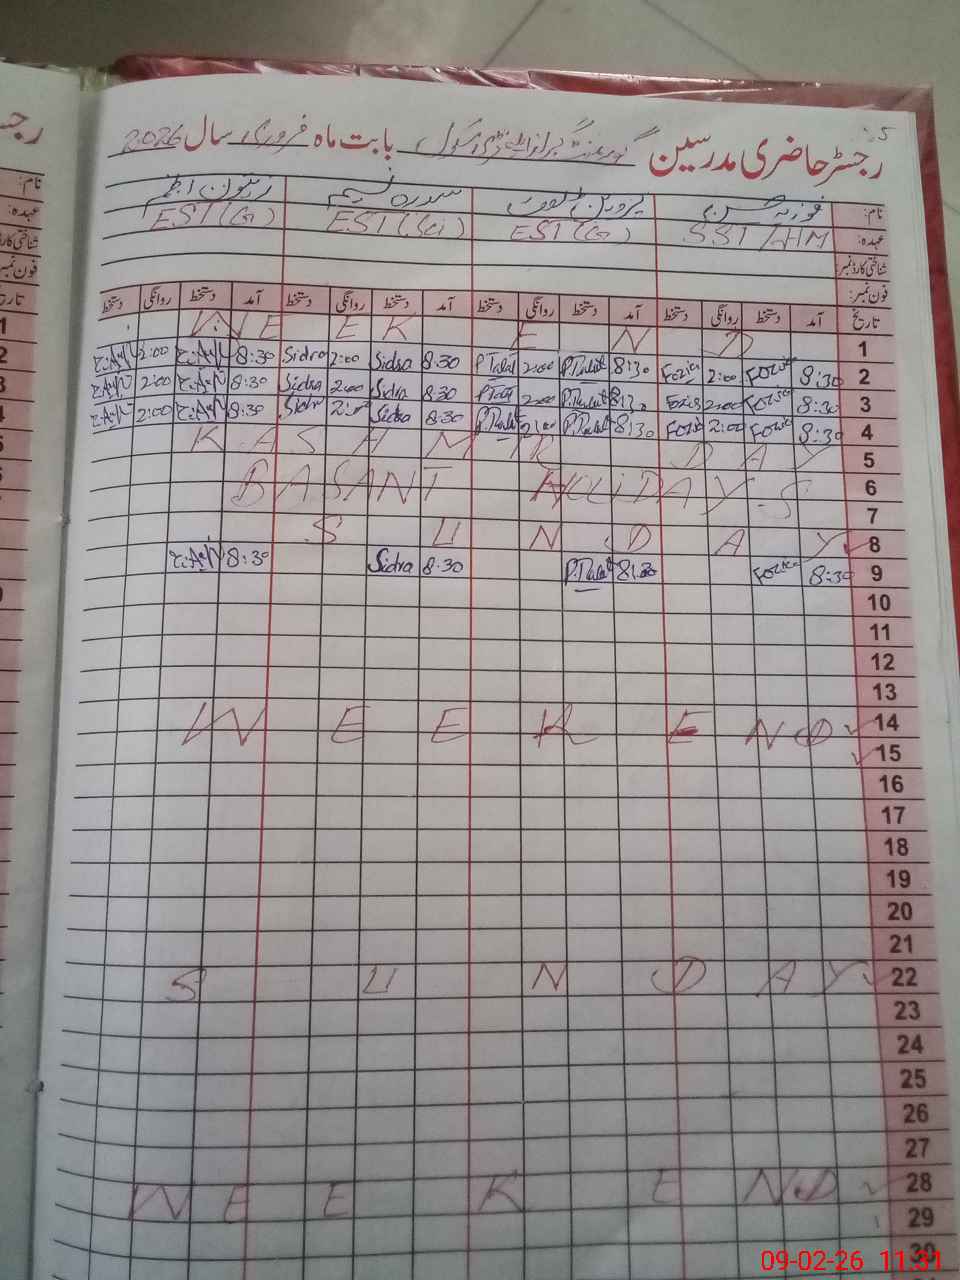 رجسٹر حاضری مدرسین گورنمنٹ گرلز سکول بابت ماہ فروری سال 2026
نام: فوزیہ پروین طلعت سدرہ نسیم
عہدہ: SST/HM EST(G) EST(Sci) EST(G)
شناختی کارڈ نمبر:
فون نمبر:
تاریخ آمد دستخط روانگی دستخط آمد دستخط روانگی دستخط آمد دستخط روانگی دستخط آمد دستخط روانگی دستخط
WEEKEND 1
2:00 8:30 Sidra 2:00 Sidra 8:30 P.Talat 2:00 P.Talat 8:30 Fozia 2:00 Fozia 8:30 2
2:00 8:30 Sidra 2:00 Sidra 8:30 P.Talat 2:00 P.Talat 8:30 Fozia 2:00 Fozia 8:30 3
2:00 8:30 Sidra 2:00 Sidra 8:30 P.Talat 2:00 P.Talat 8:30 Fozia 2:00 Fozia 8:30 4
KASAHMIR DAY 5
BASANT HOLIDAYS 6
7
SUNDAY 8
8:30 Sidra 8:30 P.Talat 8:30 Fozia 8:30 9
10
11
12
13
WEEKEND 14
15
16
17
18
19
20
21
SUNDAY 22
23
24
25
26
27
WEEKEND 28
29
30
09-02-26 11:31